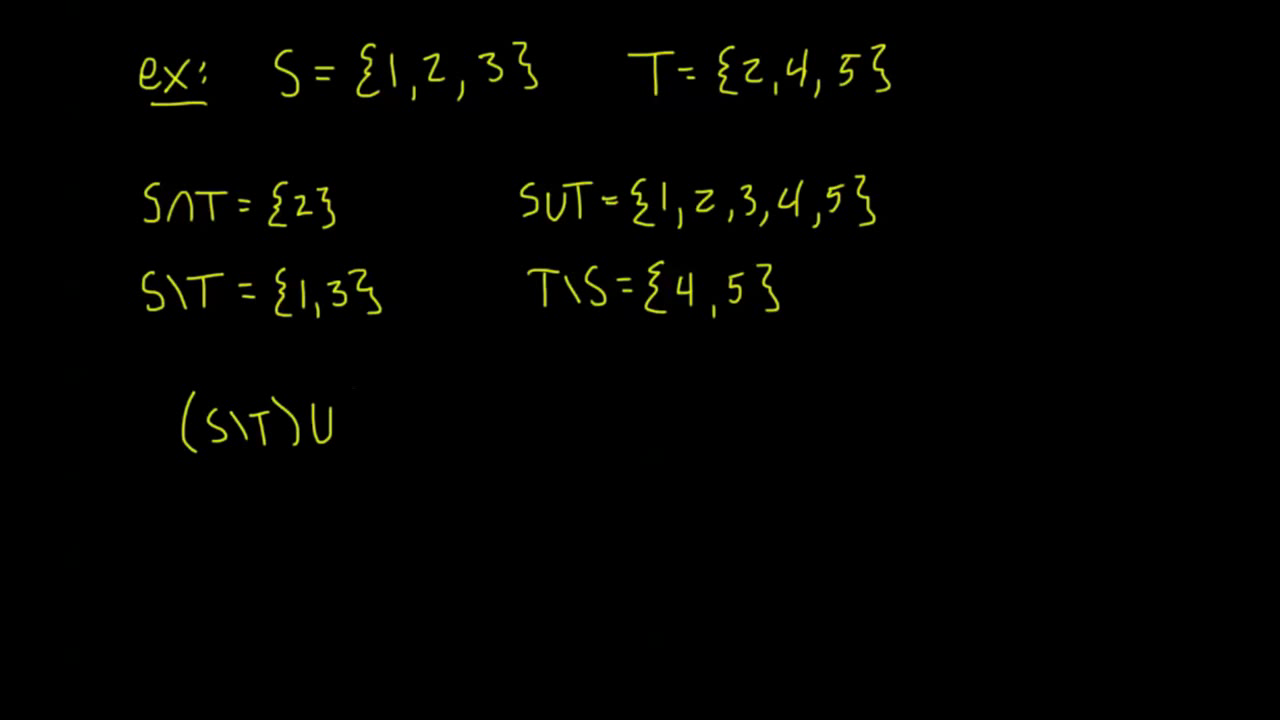 ex: S = {1, 2, 3} T = {2, 4, 5}
S∩T = {2} S∪T = {1, 2, 3, 4, 5}
S\T = {1, 3} T\S = {4, 5}
(S\T) ∪